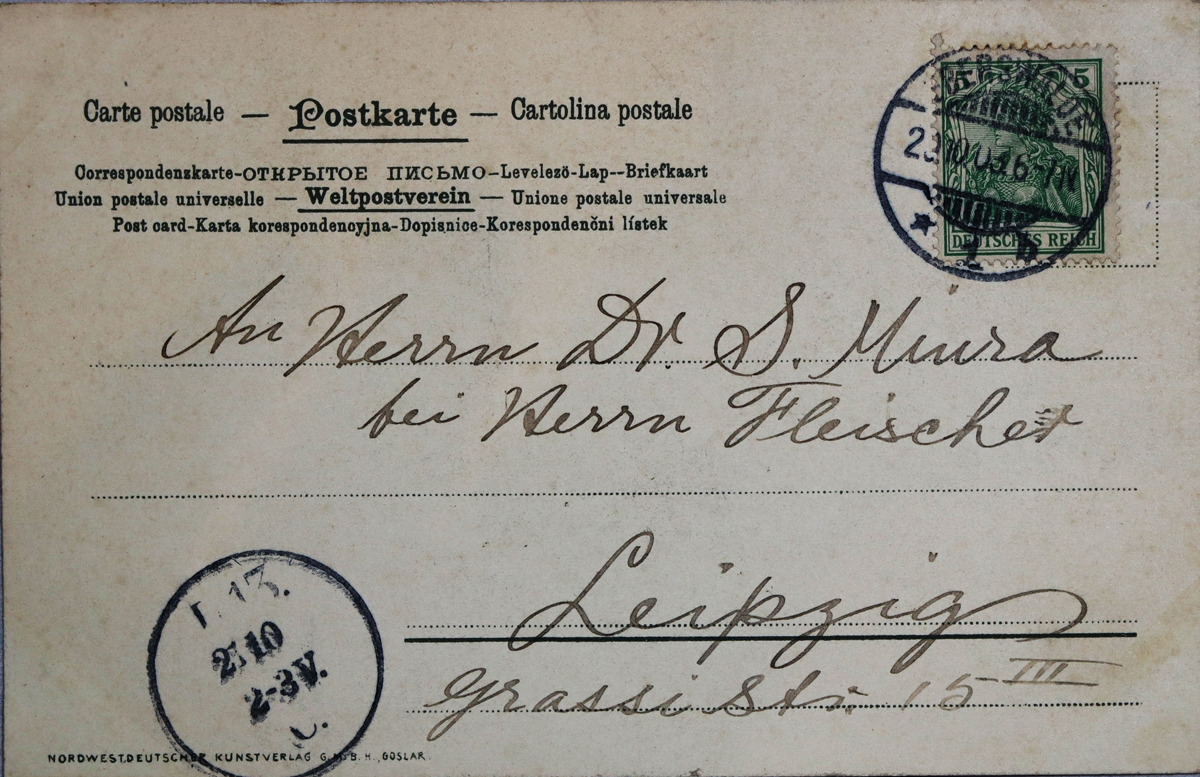 Carte postale — Postkarte — Cartolina postale
Correspondenzkarte-ОТКРЫТОЕ ПИСЬМО-Levelezö-Lap--Briefkaart
Union postale universelle — Weltpostverein — Unione postale universale
Post card-Karta korespondencyjna-Dopisnice-Korespondenčni lístek
5 5
DEUTSCHES REICH
1 b
An Herrn Dr. S. Miura
bei Herrn Fleischer
Leipzig
Grassi Str. 15 III
13.
10
2-3 V.
NORDWESTDEUTSCHER KUNSTVERLAG G.M.B.H., GOSLAR.